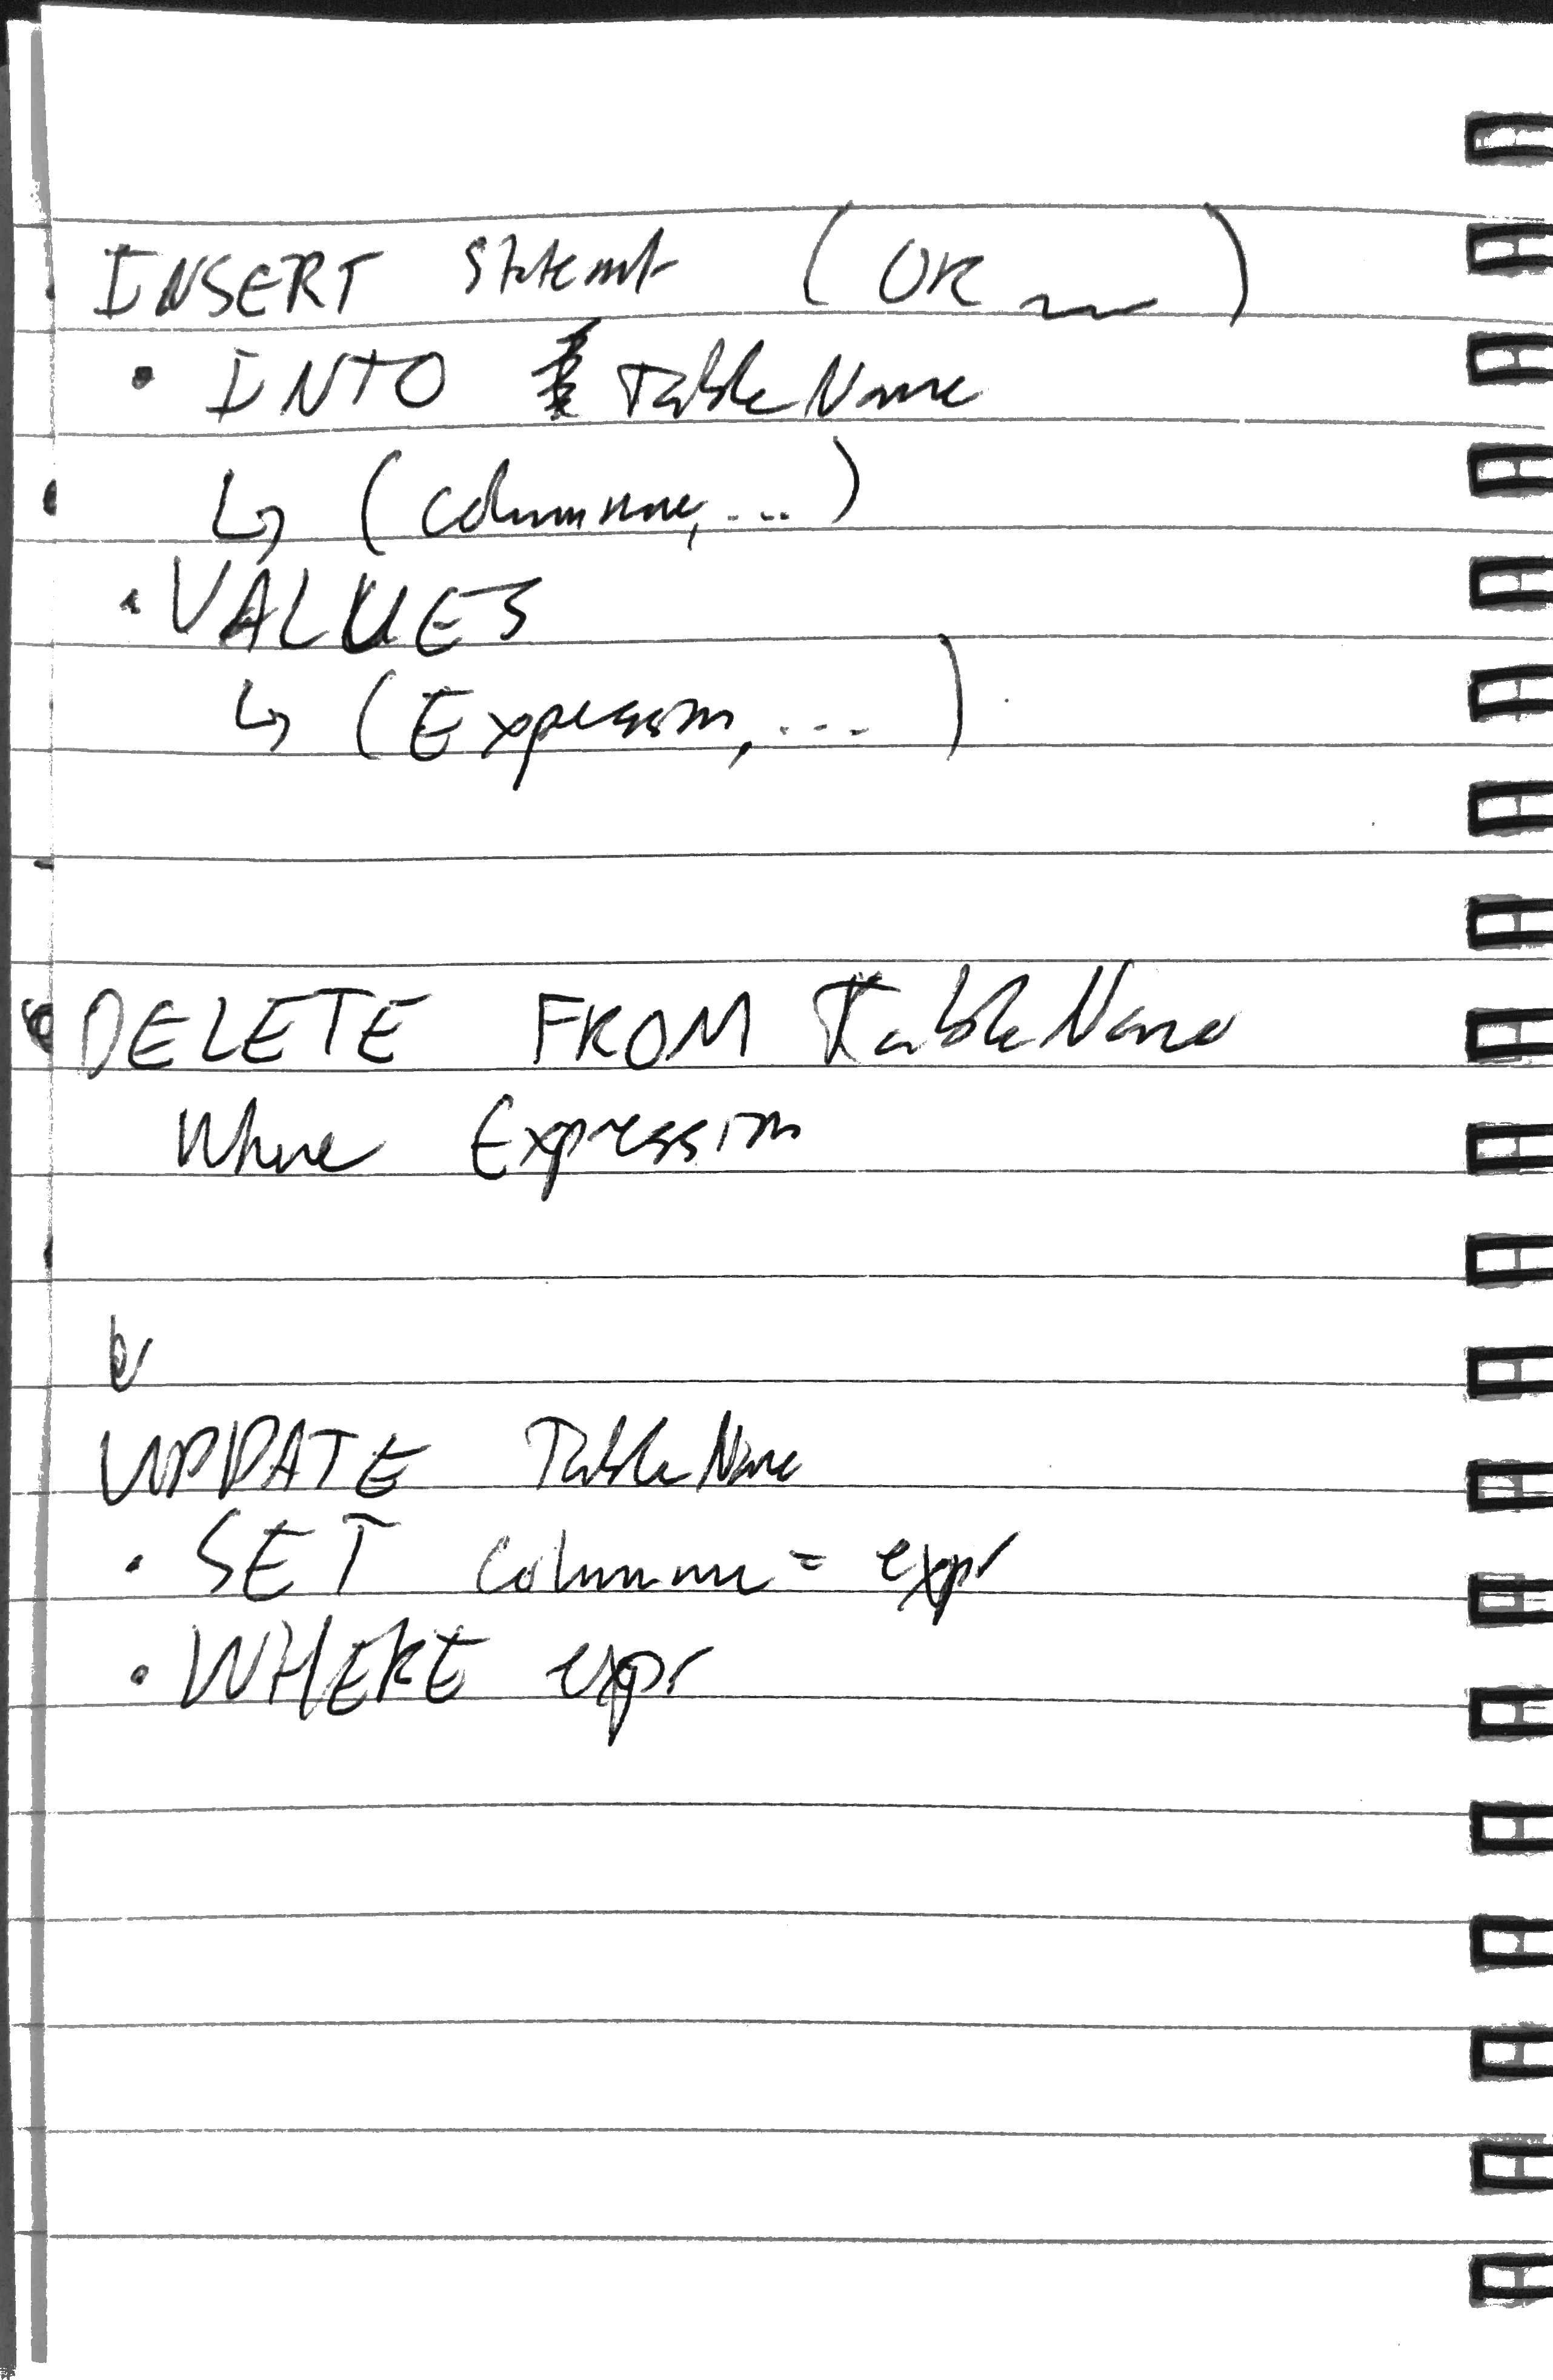 INSERT Statemt (OR ~~)
• INTO TableName
↳ (columnname, ...)
• VALUES
↳ (Expression, ...)
DELETE FROM TableName
Where Expression
UPDATE TableName
• SET columnname = expr
• WHERE expr